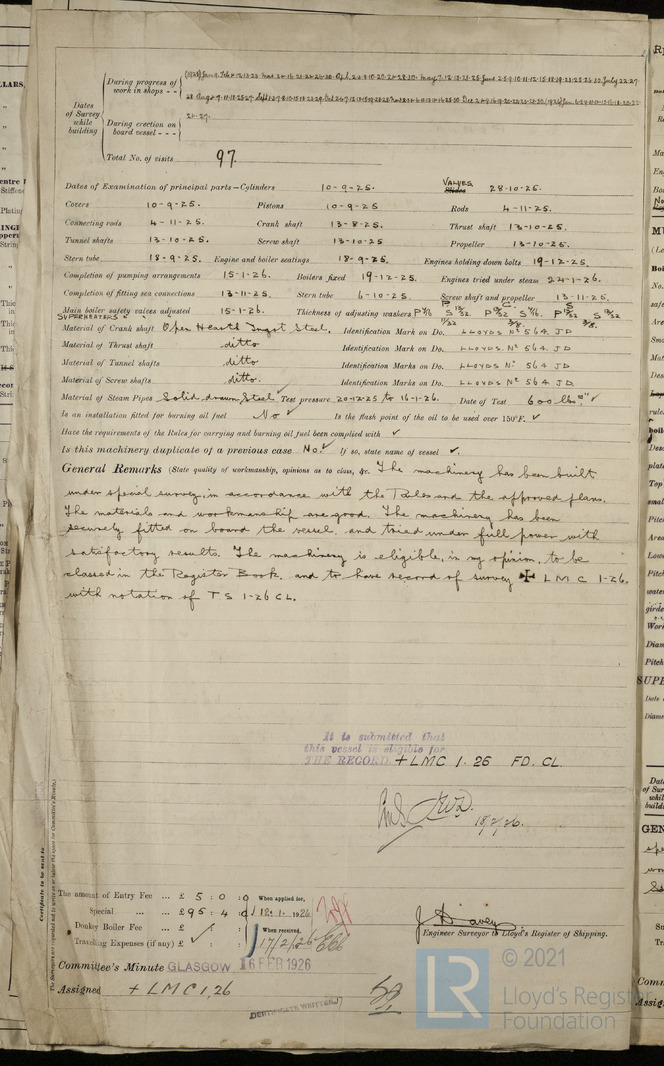 During progress of
work in shops - -
Dates
of Survey
while
building
During erection on
board vessel - - -
Total No. of visits 97.
Dates of Examination of principal parts—Cylinders 10-9-25. VALVES Slides 28-10-25.
Covers 10-9-25. Pistons 10-9-25 Rods 4-11-25.
Connecting rods 4-11-25. Crank shaft 13-8-25. Thrust shaft 13-10-25.
Tunnel shafts 13-10-25. Screw shaft 13-10-25 Propeller 13-10-25.
Stern tube 18-9-25. Engine and boiler seatings 18-9-25. Engines holding down bolts 19-12-25.
Completion of pumping arrangements 15-1-26. Boilers fixed 19-12-25. Engines tried under steam 24-1-26.
Completion of fitting sea connections 13-11-25. Stern tube 6-10-25. Screw shaft and propeller 13-11-25.
Main boiler safety valves adjusted 15-1-26. Thickness of adjusting washers
SUPERHEATERS
Material of Crank shaft Open Hearth Ingot Steel. Identification Mark on Do. LLOYDS No 564 JD
Material of Thrust shaft ditto Identification Mark on Do. LLOYDS No 564 JD
Material of Tunnel shafts ditto Identification Marks on Do. LLOYDS No 564 JD
Material of Screw shafts ditto. Identification Marks on Do. LLOYDS No 564 JD.
Material of Steam Pipes Solid drawn Steel ✓ Test pressure 20-12-25 to 16-1-26. Date of Test 600 lbs □" ✓
Is an installation fitted for burning oil fuel No ✓ Is the flash point of the oil to be used over 150°F. ✓
Have the requirements of the Rules for carrying and burning oil fuel been complied with ✓
Is this machinery duplicate of a previous case No. ✓ If so, state name of vessel ✓.
General Remarks (State quality of workmanship, opinions as to class, &c. The machinery has been built
under special survey, in accordance with the Rules and the approved plans.
The materials and workmanship are good. The machinery has been
securely fitted on board the vessel, and tried under full power with
satisfactory results. The machinery is eligible, in my opinion, to be
classed in the Register Book, and to have record of survey ✠ LMC 1-26.
with notation of TS 1-26 CL.
It is submitted that
this vessel is eligible for
THE RECORD. + LMC 1.26 FD. CL.
18/2/26.
Certificate to be sent to
The amount of Entry Fee ... £ 5 : 0 : 0 When applied for,
Special ... ... £ 95 : 4 : 0 12.1.1926
Donkey Boiler Fee ... £ : : When received,
Travelling Expenses (if any) £ ✓ : : 17/2/26
J. Davey
Engineer Surveyor to Lloyd's Register of Shipping.
Committee's Minute GLASGOW 16 FEB 1926
Assigned + LMC 1,26
CERTIFICATE WRITTEN
LR
© 2021
Lloyd's Register
Foundation